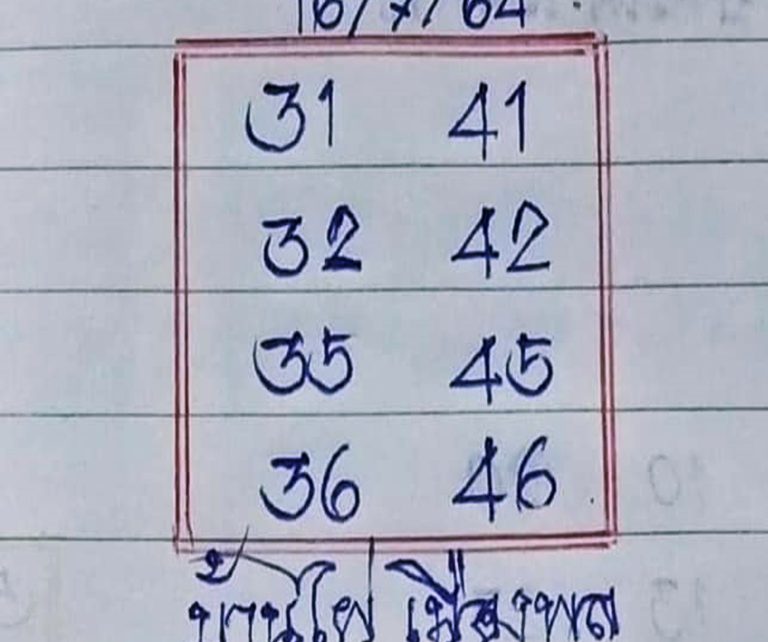 16/7/64
31 41
32 42
35 45
36 46